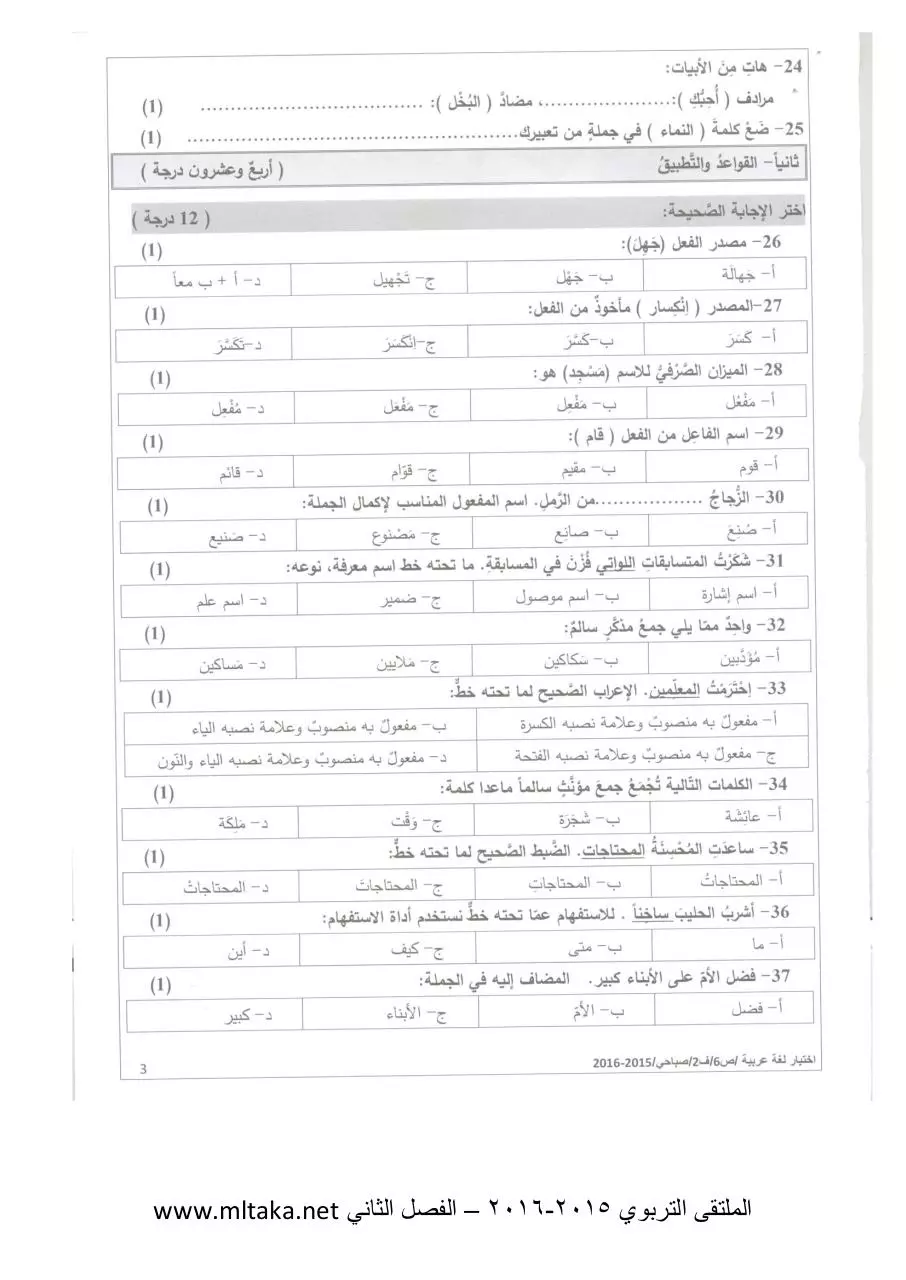 24- هاتِ مِنَ الأبيات:
مرادف ( أُحِبُّكِ ):......................، مضادَّ ( البُخْل ): ...................................... (1)
25- ضَعْ كلمةَ ( النماء ) في جملةٍ من تعبيرك...................................................... (1)
ثانياً- القواعدُ والتَّطبيقُ ( أربعٌ وعشرون درجة )
اختر الإجابة الصَّحيحة: ( 12 درجة )
26- مصدر الفعل (جَهِلَ): (1)
أ- جَهالَة ب- جَهْل ج- تَجْهيل د- أ + ب معاً
27-المصدر ( اِنْكِسار ) مأخوذٌ من الفعل: (1)
أ- كَسَرَ ب-كَسَّرَ ج-انْكَسَرَ د-تَكَسَّرَ
28- الميزان الصَّرْفيُّ للاسم (مَسْجِد) هو: (1)
أ- مَفْعُل ب- مَفْعِل ج- مَفْعَل د- مُفْعِل
29- اسم الفاعِل من الفعل ( قام ): (1)
أ- قوم ب- مقيم ج- قوّام د- قائم
30- الزُّجاجُ ..................من الرَّملِ. اسم المفعول المناسب لإكمال الجملة: (1)
أ- صُنِعَ ب- صانِع ج- مَصْنوع د- صَنيع
31- شَكَرْتُ المتسابقاتِ اللواتي فُزْنَ في المسابقةِ. ما تحته خط اسم معرفة، نوعه: (1)
أ- اسم إشارة ب- اسم موصول ج- ضمير د- اسم علم
32- واحِدٌ ممّا يلي جمعُ مذكَّرٍ سالمٌ: (1)
أ- مُؤَدَّبين ب- سَكاكين ج- مَلايين د- مَساكين
33- اِحْتَرَمْتُ المعلِّمين. الإعراب الصَّحيح لما تحته خطٌّ: (1)
أ- مفعولٌ به منصوبٌ وعلامة نصبه الكسرة ب- مفعولٌ به منصوبٌ وعلامة نصبه الياء
ج- مفعولٌ به منصوبٌ وعلامة نصبه الفتحة د- مفعولٌ به منصوبٌ وعلامة نصبه الياء والنّون
34- الكلمات التَّالية تُجْمَعُ جمعَ مؤنَّثٍ سالماً ماعدا كلمة: (1)
أ- عائِشَة ب- شَجَرَة ج- وَقْت د- مَلِكَة
35- ساعدَتِ المُحْسِنَةُ المحتاجات. الضَّبط الصَّحيح لما تحته خطٌّ: (1)
أ- المحتاجاتُ ب- المحتاجاتِ ج- المحتاجاتَ د- المحتاجاتْ
36- أشربُ الحليبَ ساخِناً . للاستفهام عمّا تحته خطٌّ نستخدم أداة الاستفهام: (1)
أ- ما ب- متى ج- كيف د- أين
37- فضل الأمّ على الأبناء كبير. المضاف إليه في الجملة: (1)
أ- فضل ب- الأمّ ج- الأبناء د- كبير
اختبار لغة عربية /ص6/ف2/صباحي/2015-2016 3
الملتقى التربوي ٢٠١٥-٢٠١٦ – الفصل الثاني www.mltaka.net